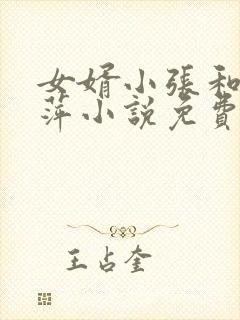 女婿小張和
萍小說免費
王占奎